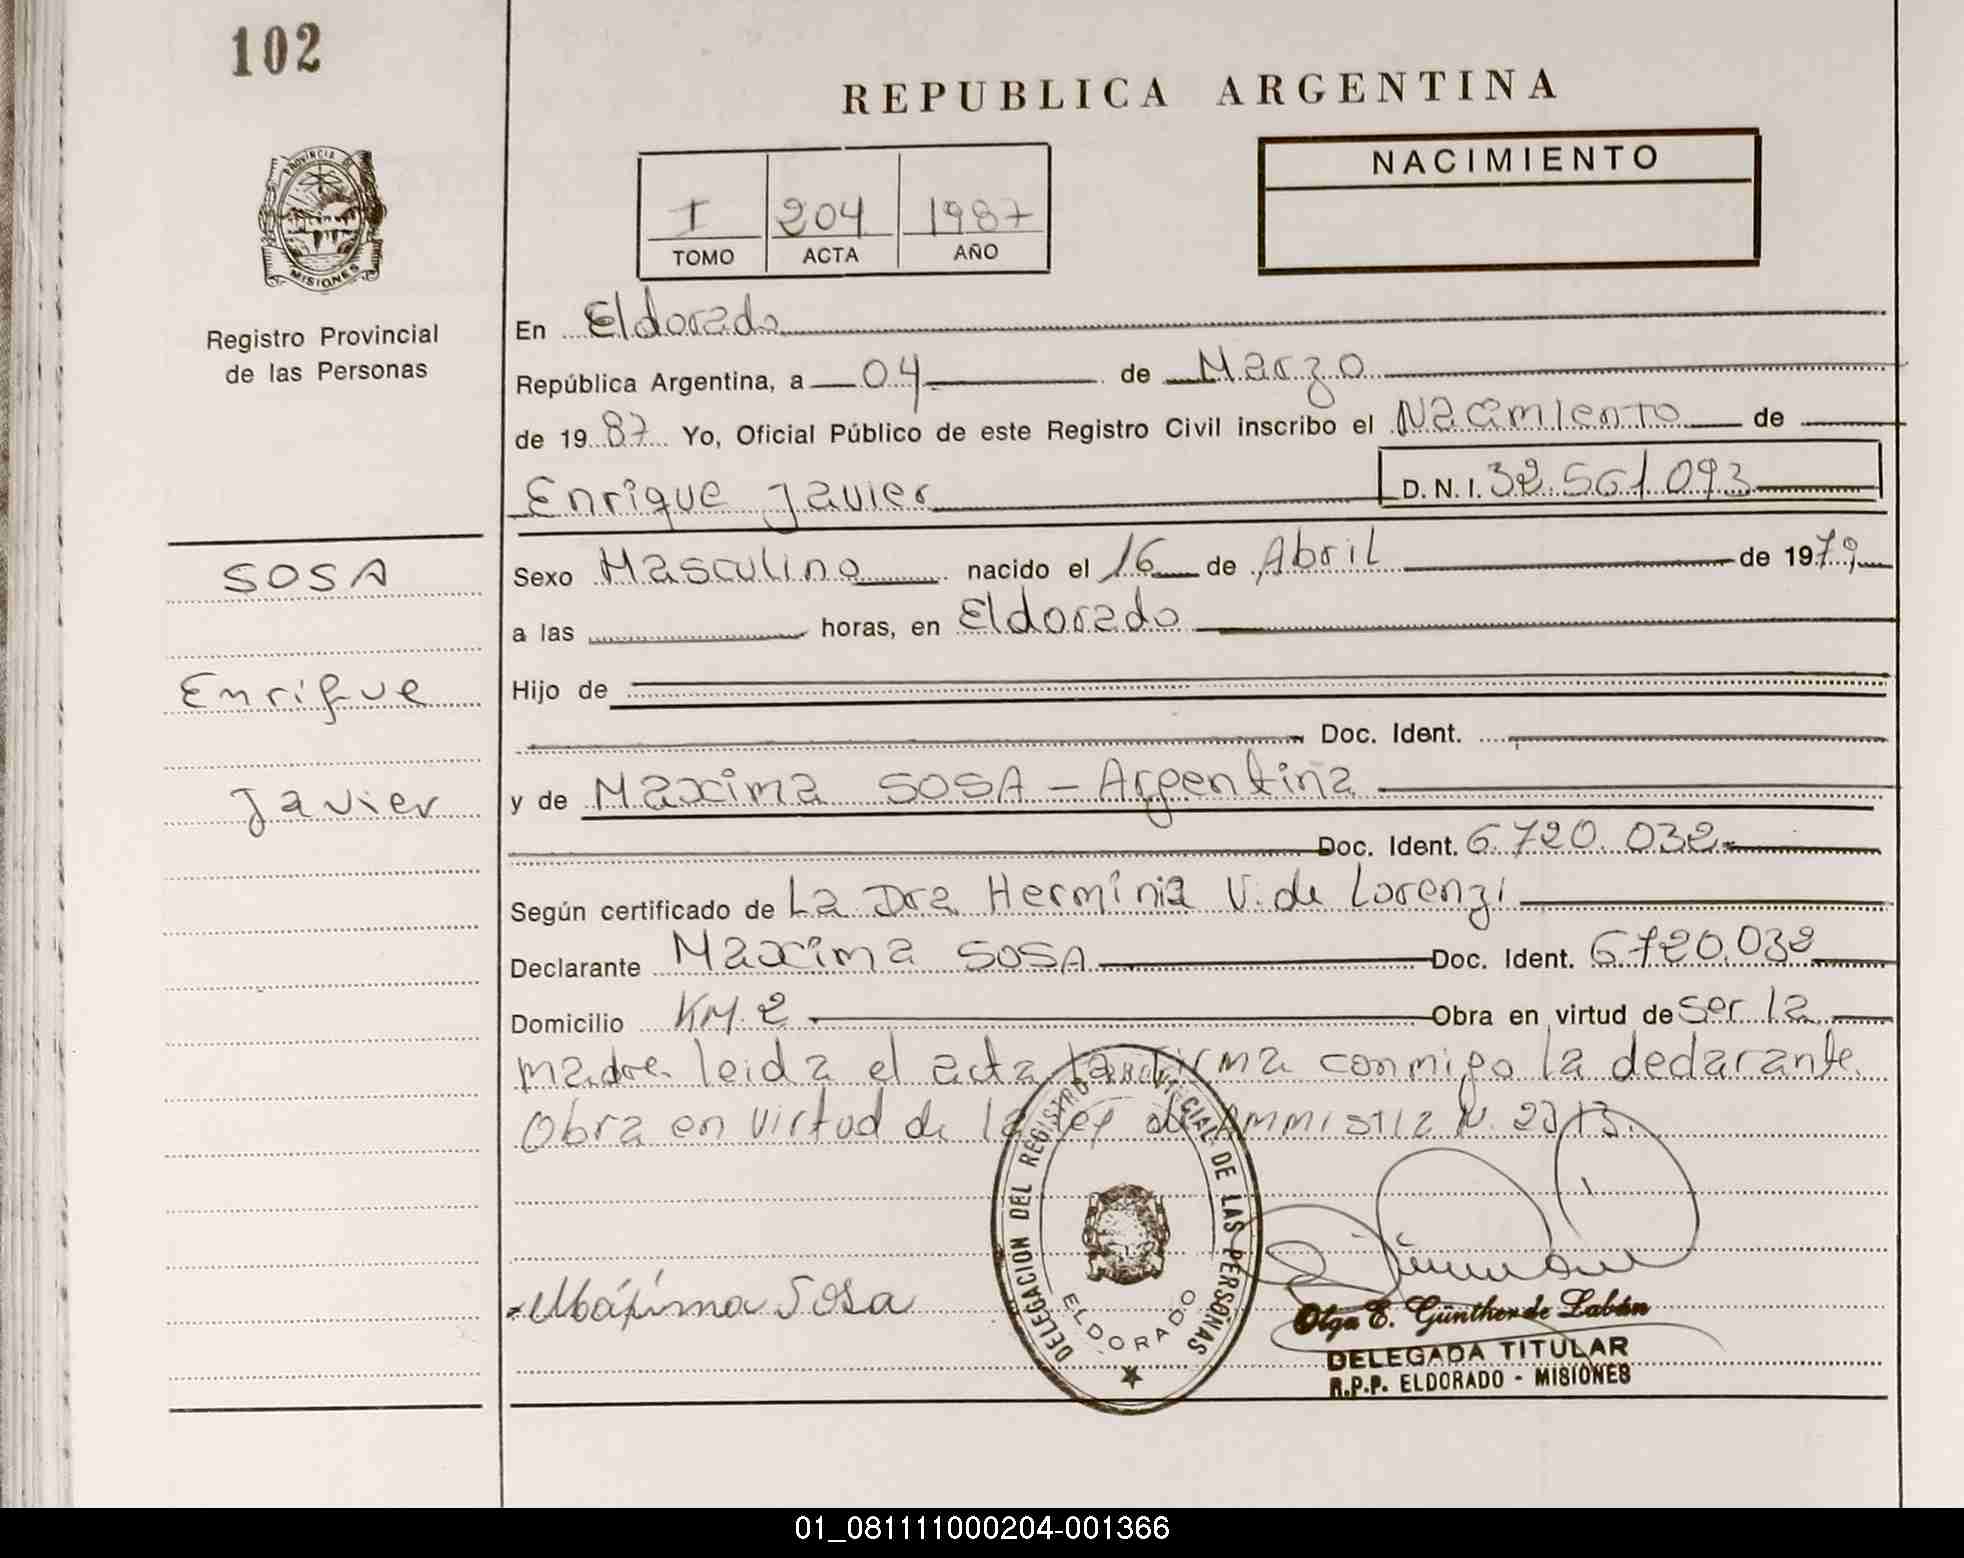 102
REPUBLICA ARGENTINA
PROVINCIA DE
MISIONES
Registro Provincial
de las Personas
I 204 1987
TOMO ACTA AÑO
NACIMIENTO
En Eldorado
República Argentina, a 04 de Marzo
de 1987 Yo, Oficial Público de este Registro Civil inscribo el Nacimiento de
Enrique Javier D.N.I. 32.561.093
SOSA
Enrique
Javier
Sexo Masculino nacido el 16 de Abril de 1979
a las horas, en Eldorado
Hijo de
Doc. Ident.
y de Maxima SOSA - Argentina
Doc. Ident. 6.720.032
Según certificado de La Dra Herminia V. de Lorenzi
Declarante Maxima SOSA Doc. Ident. 6.720.032
Domicilio KM. 2 Obra en virtud de ser la
madre. leida el acta la firma conmigo la declarante.
Obra en virtud de la ley de Ammistia N. 2313.
DELEGACION DEL REGISTRO PROVINCIAL DE LAS PERSONAS
ELDORADO
Máxima Sosa
Olga E. Günther de Labán
DELEGADA TITULAR
R.P.P. ELDORADO - MISIONES
01_081111000204-001366